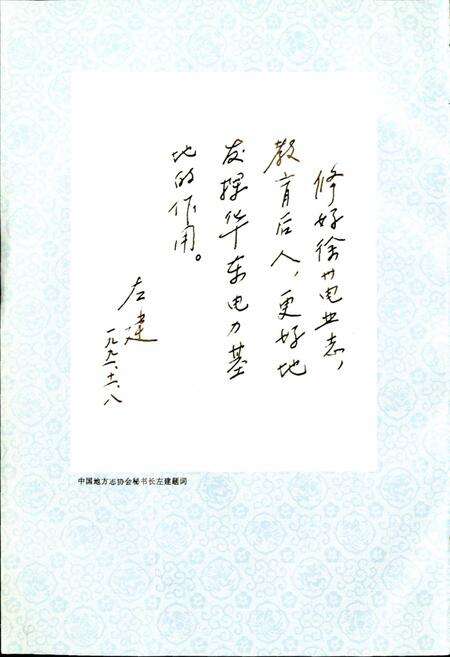 修好徐州电业志，
教育后人，更好地
发挥华东电力基
地的作用。
左建
一九九一、十二、八
中国地方志协会秘书长左建题词